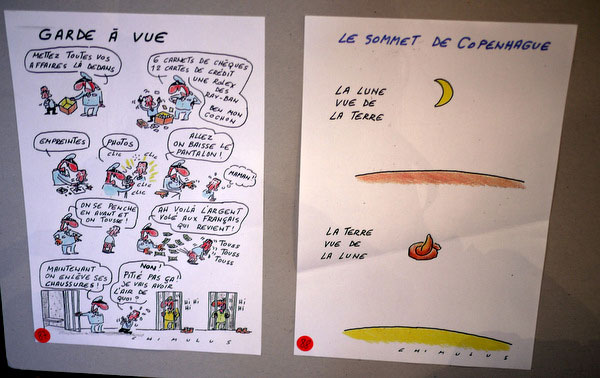 GARDE À VUE
METTEZ TOUTES VOS
AFFAIRES LÀ DEDANS
6 CARNETS DE CHÈQUES
12 CARTES DE CRÉDIT
UNE ROLEX
DES
RAY-BAN
BEN MON
COCHON
EMPREINTES
PHOTOS
CLIC
CLIC
CLIC
CLIC
ALLEZ
ON BAISSE LE
PANTALON!
MAMAN!
ON SE PENCHE
EN AVANT ET
ON TOUSSE!
AH VOILÀ L'ARGENT
VOLÉ AUX FRANÇAIS
QUI REVIENT!
TOUSS
TOUSS
TOUSS
MAINTENANT
ON ENLÈVE SES
CHAUSSURES!
NON!
PITIÉ PAS ÇA!
JE VAIS AVOIR
L'AIR DE
QUOI?
HI
HI
HI
HI
HI
CHIMULUS
LE SOMMET DE COPENHAGUE
LA LUNE
VUE DE
LA TERRE
LA TERRE
VUE DE
LA LUNE
CHIMULUS